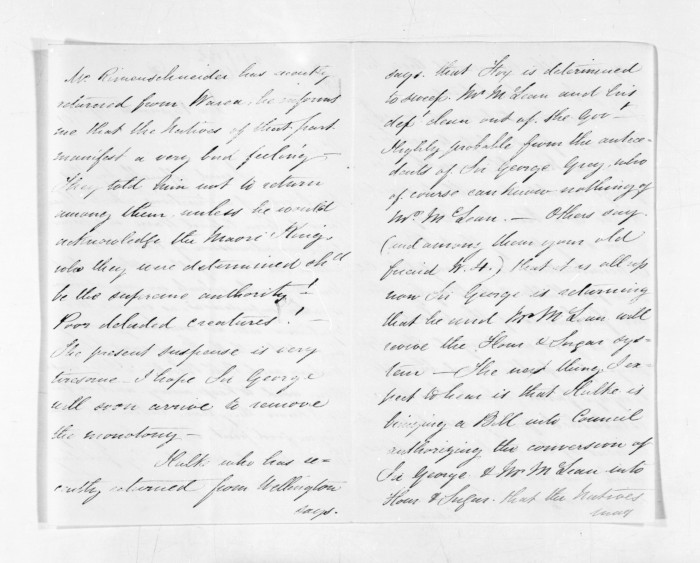 Mr Riemenschneider has recently
returned from Warea, he informs
me that the Natives of that part
manifest a very bad feeling —
They told him not to return
among them, unless he would
acknowledge the Maori King,
who they were determined sh'd
be the supreme authority!
Poor deluded creatures! —
The present suspense is very
tiresome. I hope Sir George
will soon arrive to remove
the monotony —
Hulke who has re-
cently returned from Wellington
says.
says. that Fox is determined
to sweep Mr McLean and his
dep't clean out of the Gov't
Highly probable from the antece-
dents of Sir George Grey, who
of course can know nothing of
Mr McLean. — Others say.
(and among them your old
friend W. H.) that it is all up
now Sir George is returning
that he and Mr McLean will
revive the Flour & Sugar sys-
tem — The next thing I ex-
pect to hear is that Hulke is
bringing a Bill into Council
authorizing the conversion of
Sir George & Mr McLean into
Flour & Sugar. that the Natives
may